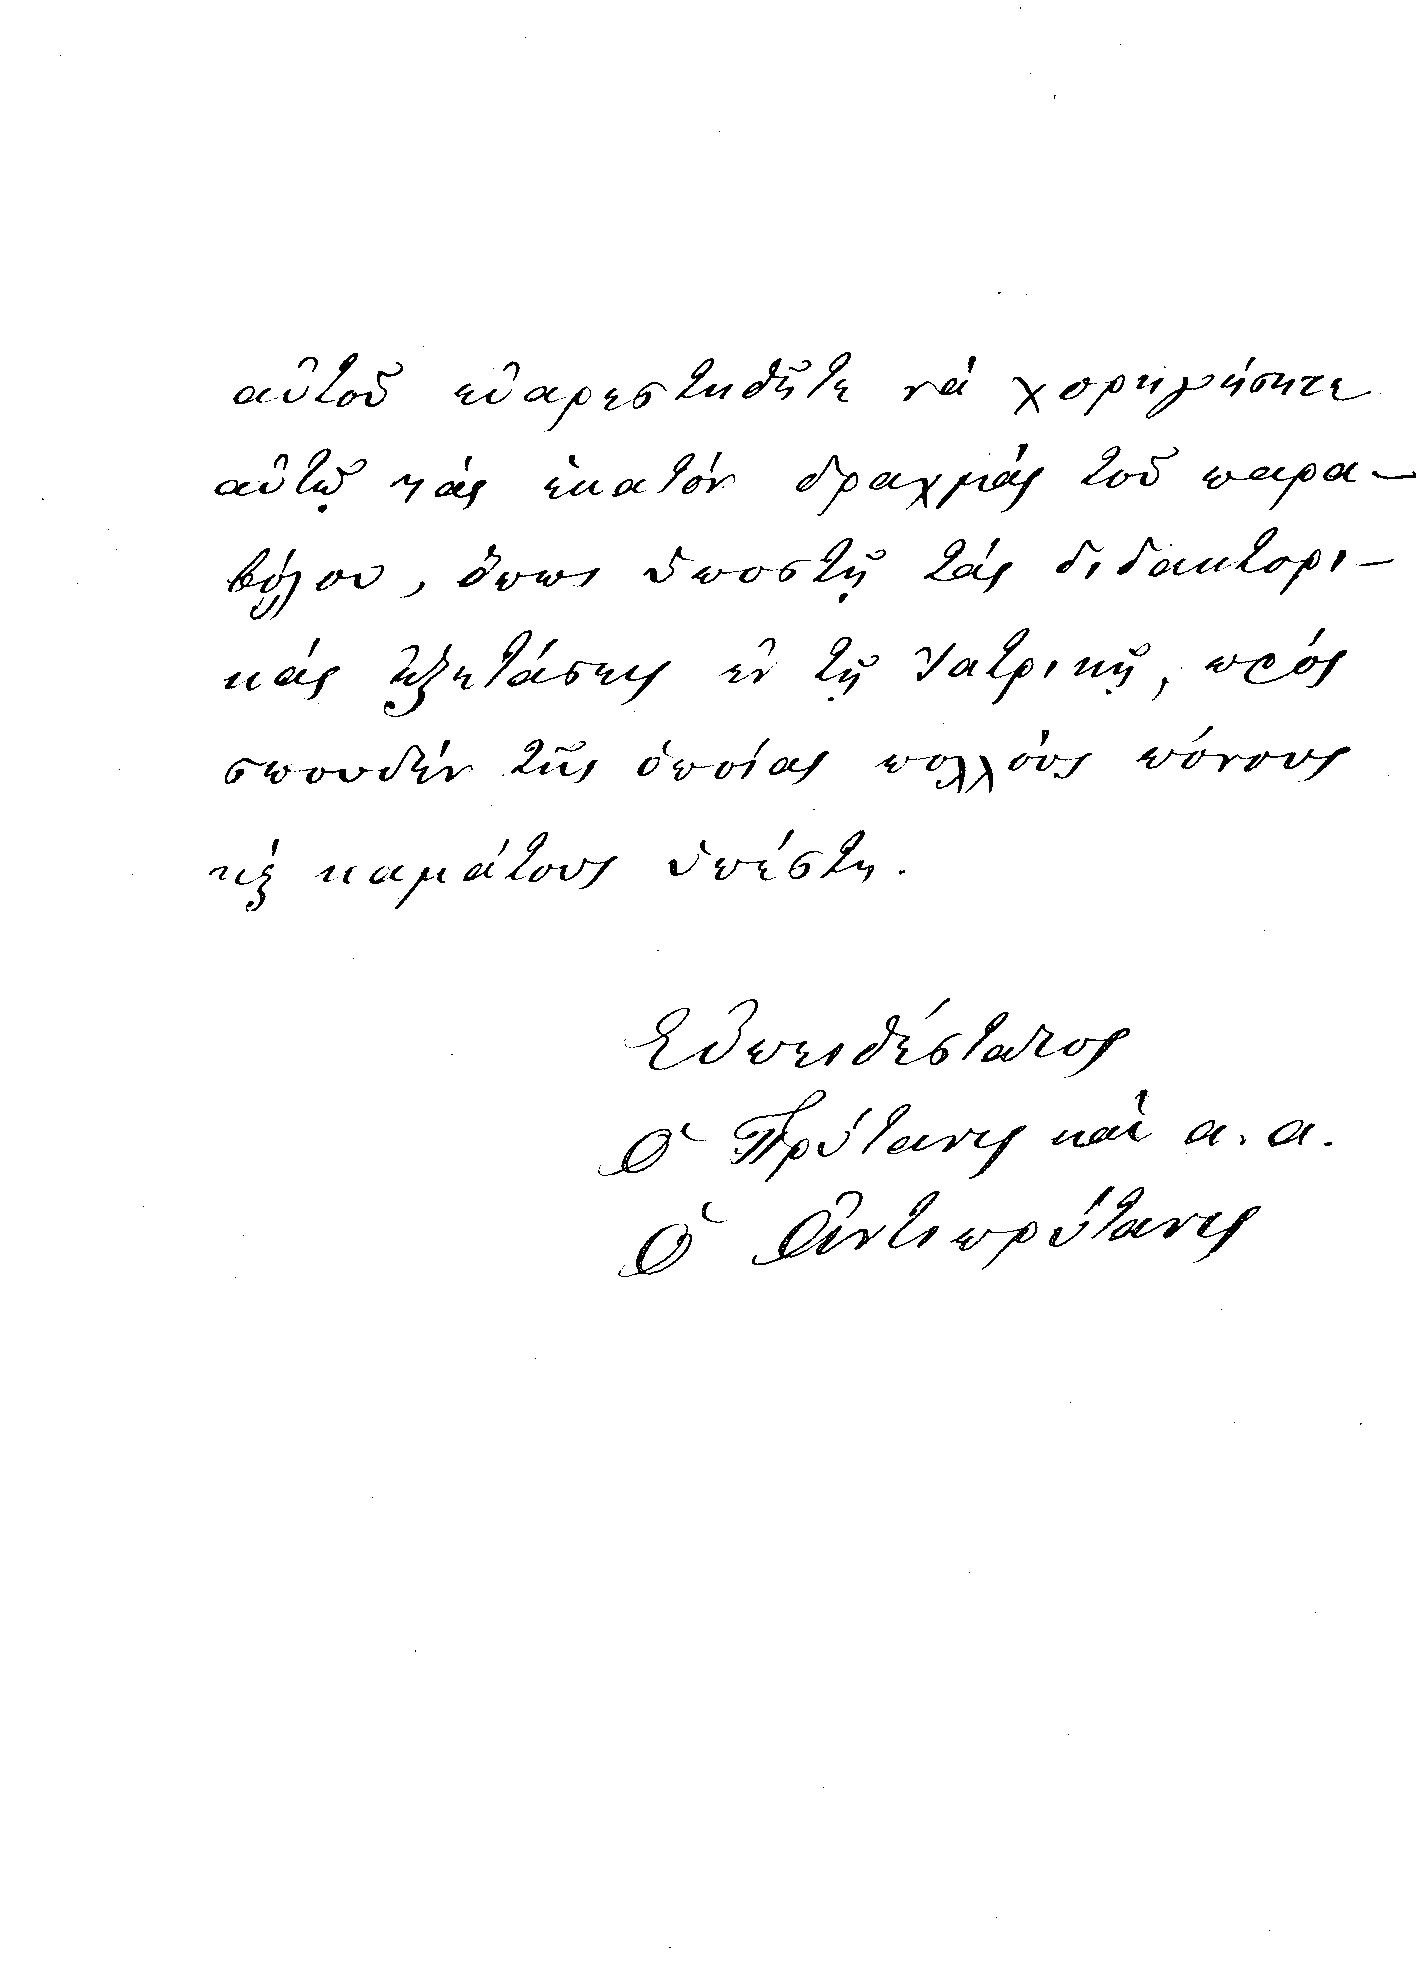 αὐτοῦ εὐαρεστηθῆτε νὰ χορηγήσητε
αὐτῷ τὰς ἑκατὸν δραχμὰς τοῦ παρα-
βόλου, ὅπως ὑποστῇ τὰς διδακτορι-
κὰς ἐξετάσεις ἐν τῇ Ἰατρικῇ, πρὸς
σπουδὴν τῆς ὁποίας πολλοὺς πόνους
κ̀ καμάτους ὑπέστη.
Εὐπειθέστατος
Ὁ Πρύτανις καὶ α. α.
Ὁ Ἀντιπρύτανις